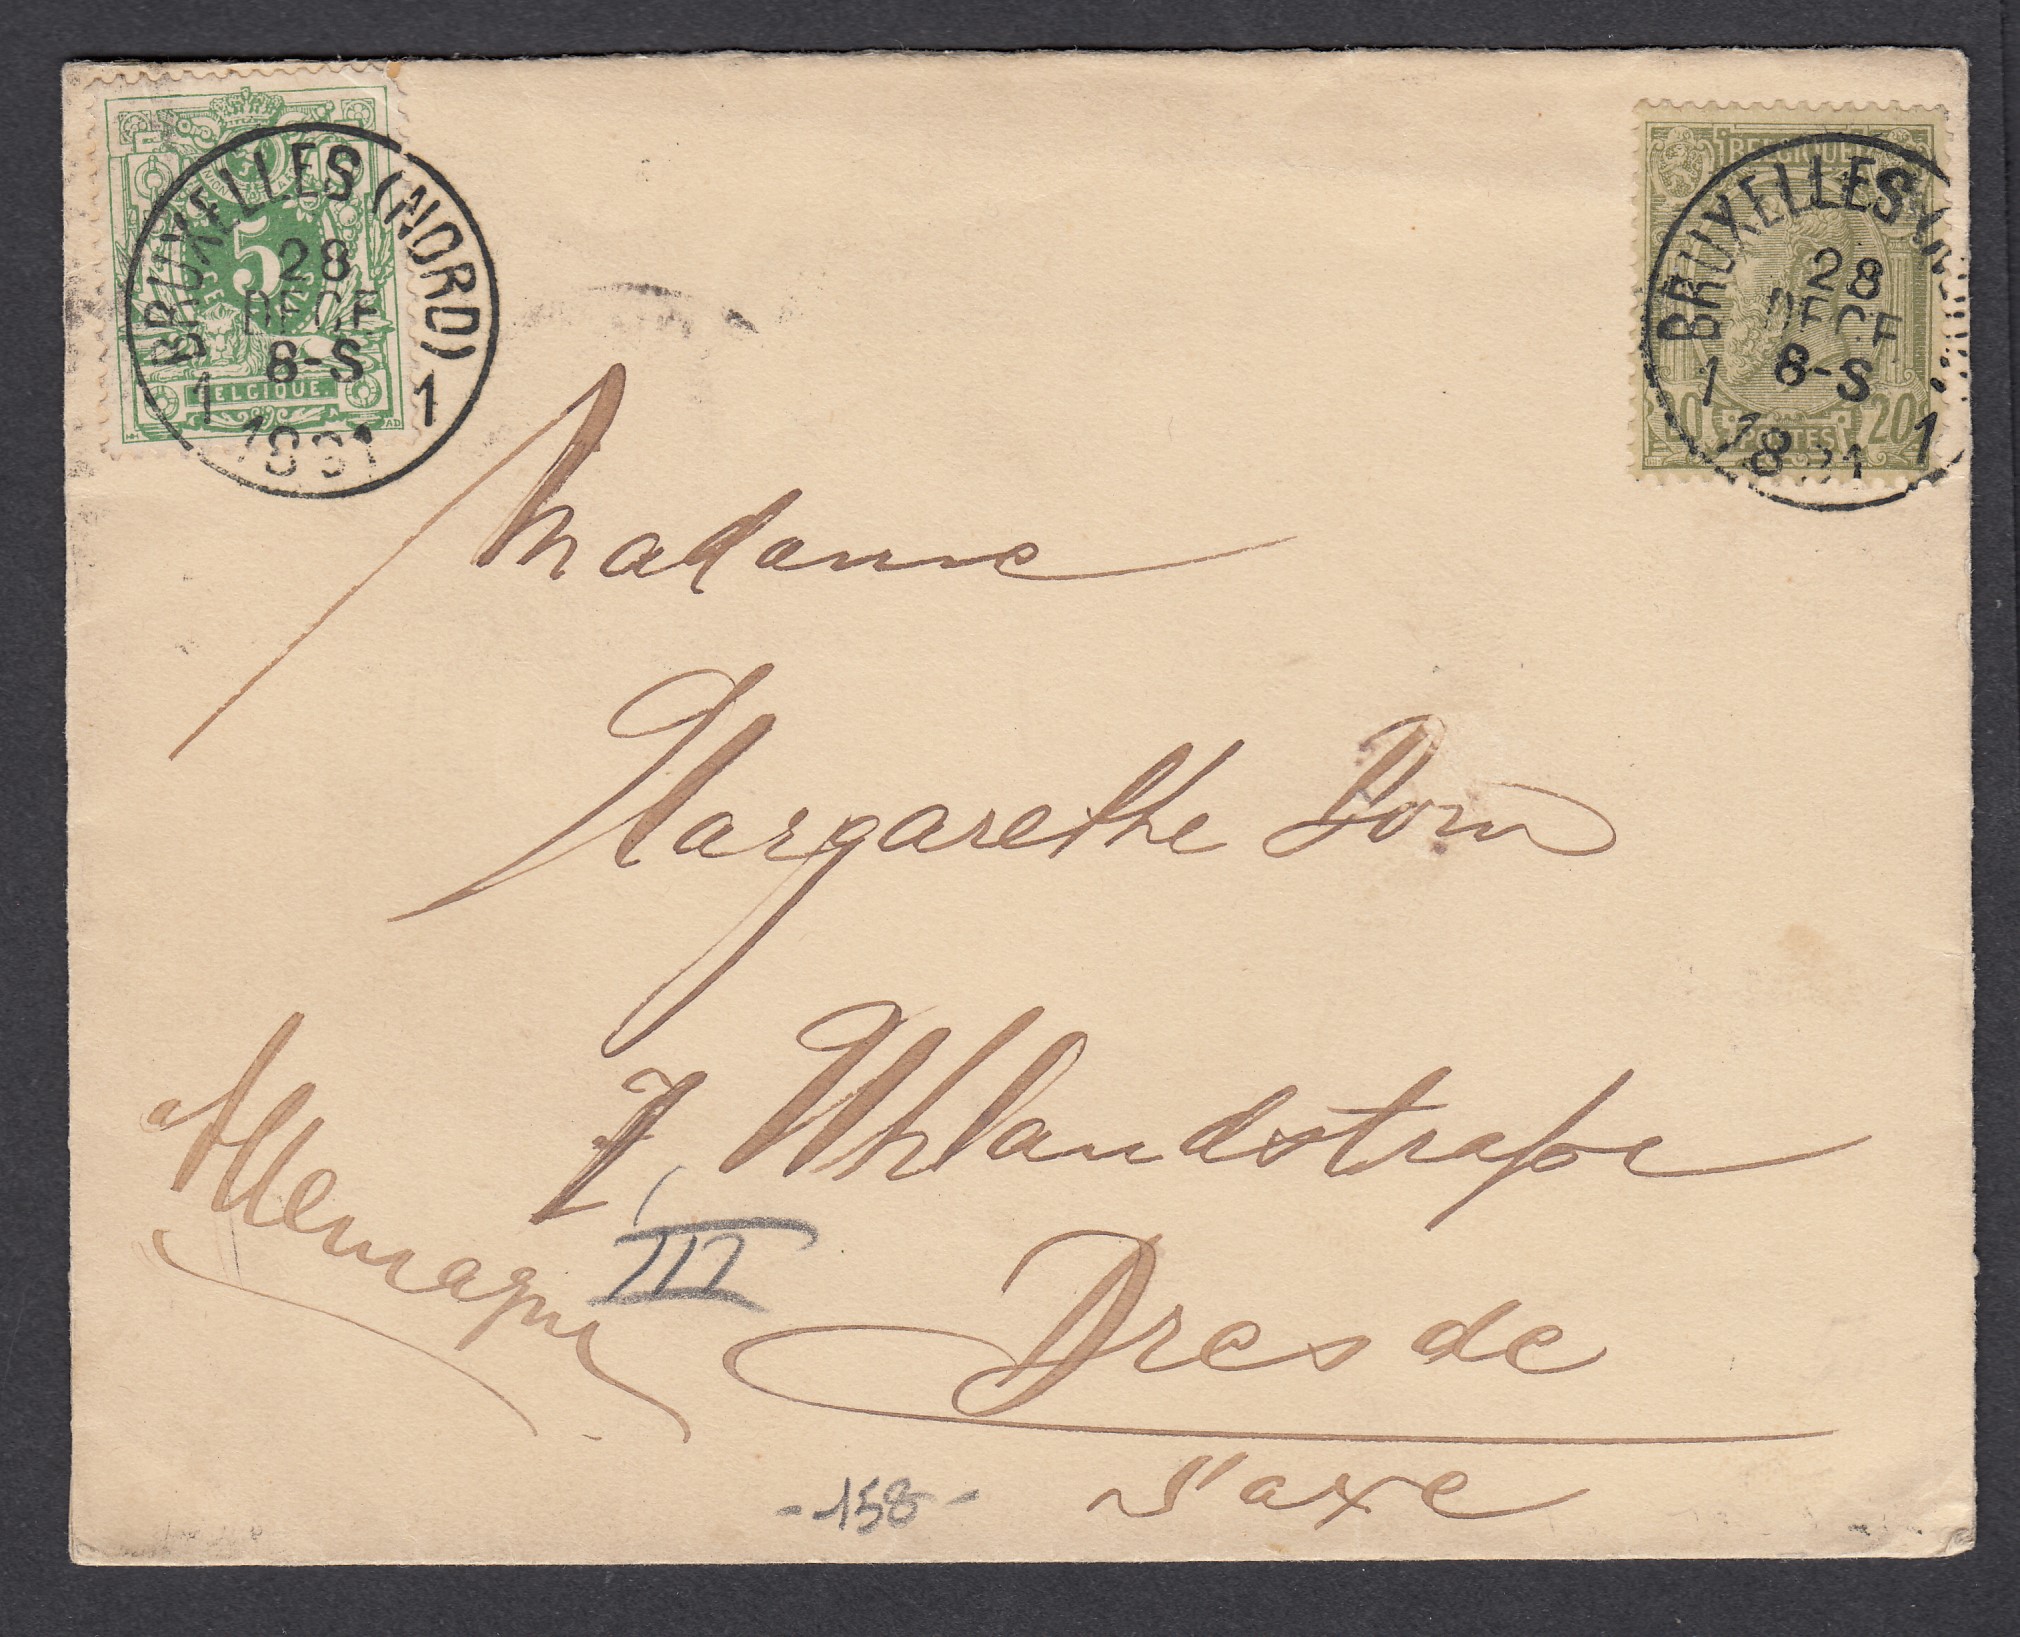 BRUXELLES (NORD)
28
DECE
8-S
1 1
1891
5
BELGIQUE
BELGIQUE
BRUXELLES (NORD)
28
DECE
8-S
1 1
1891
20
POSTES
20
Madame
Margarethe Dorn
7, Uhlandstraße
III
Dresde
Saxe
Allemagne
-158-